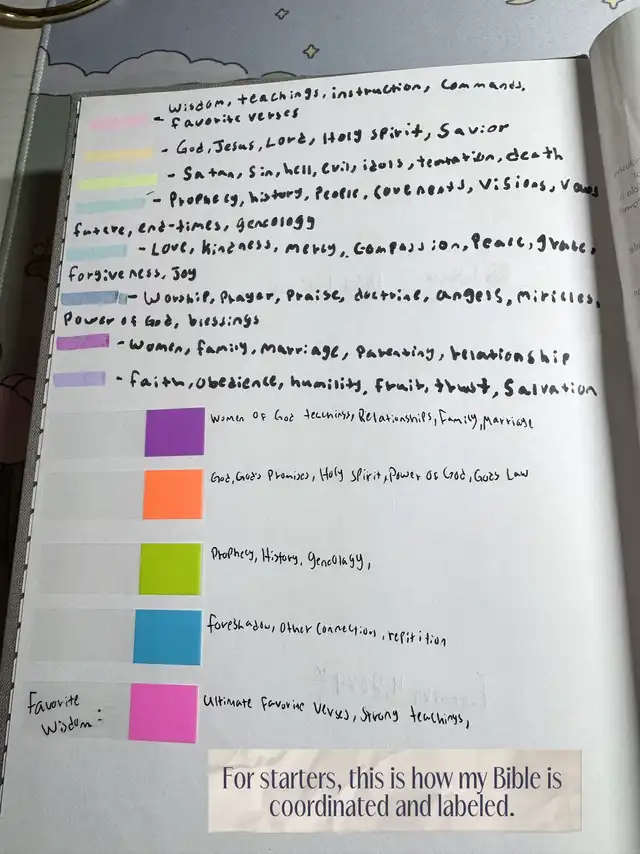 - Wisdom, teachings, instruction, commands,
favorite verses
- God, Jesus, Lord, Holy spirit, Savior
- Satan, Sin, hell, Evil, idols, temtation, death
- Prophecy, history, People, covenents, Visions, Vows
future, end-times, geneology
- Love, kindness, mercy, compassion, Peace, grace,
forgiveness, Joy
- Worship, Prayer, Praise, doctrine, angels, miricles,
Power of God, blessings
- Women, family, Marriage, Parenting, relationship
- faith, obedience, humility, fruit, trust, Salvation
Women of God teachings, Relationships, Family, Marriage
God, God's Promises, Holy Spirit, Power of God, Gods Law
Prophecy, History, geneology,
foreshadow, other connections, repitition
Favorite
Wisdom:
Ultimate favorite verses, strong teachings,
For starters, this is how my Bible is
coordinated and labeled.